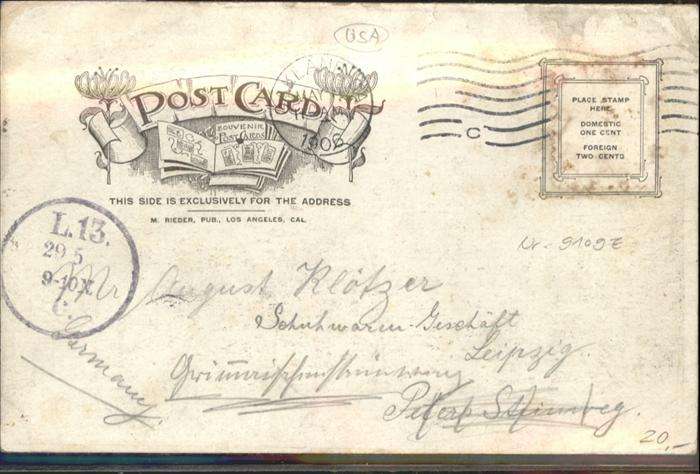 USA
POST CARD
SOUVENIR
POST CARDS
MAY
1906
C
PLACE STAMP
HERE
DOMESTIC
ONE CENT
FOREIGN
TWO CENTS
THIS SIDE IS EXCLUSIVELY FOR THE ADDRESS
M. RIEDER, PUB., LOS ANGELES, CAL.
L. 13.
29 5
9-10 X
C.
Nr. 9109E
Mr August Klötzer
Schuhwaren-Geschäft
Leipzig.
Germany.
Peters Steinweg.
20,-